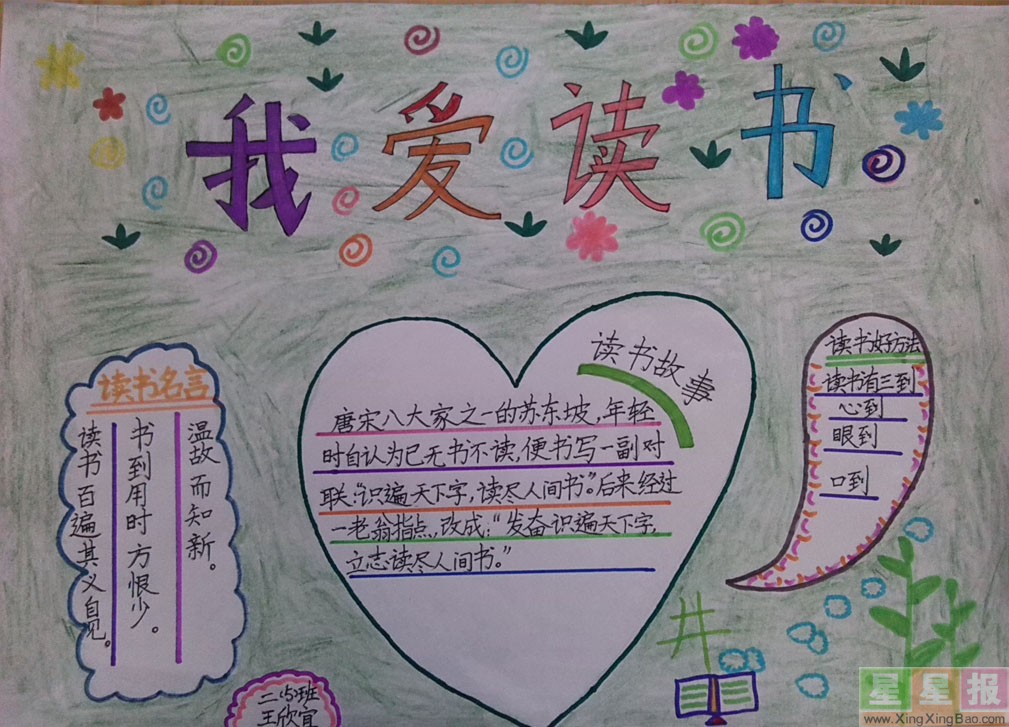 我爱读书
读书名言
温故而知新。
书到用时方恨少。
读书百遍其义自见。
读书故事
唐宋八大家之一的苏东坡，年轻
时自认为已无书不读，便书写一副对
联：“识遍天下字，读尽人间书”。后来经过
一老翁指点，改成：“发奋识遍天下字，
立志读尽人间书。”
读书好方法
读书有三到
心到
眼到
口到
二（5）班
王欣宜
星星报
www.XingXingBao.com